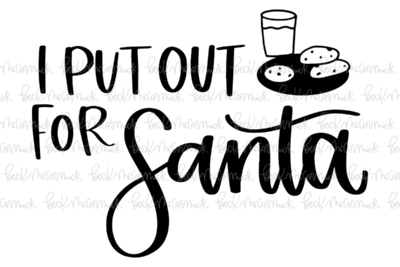 I PUT OUT
FOR
Santa